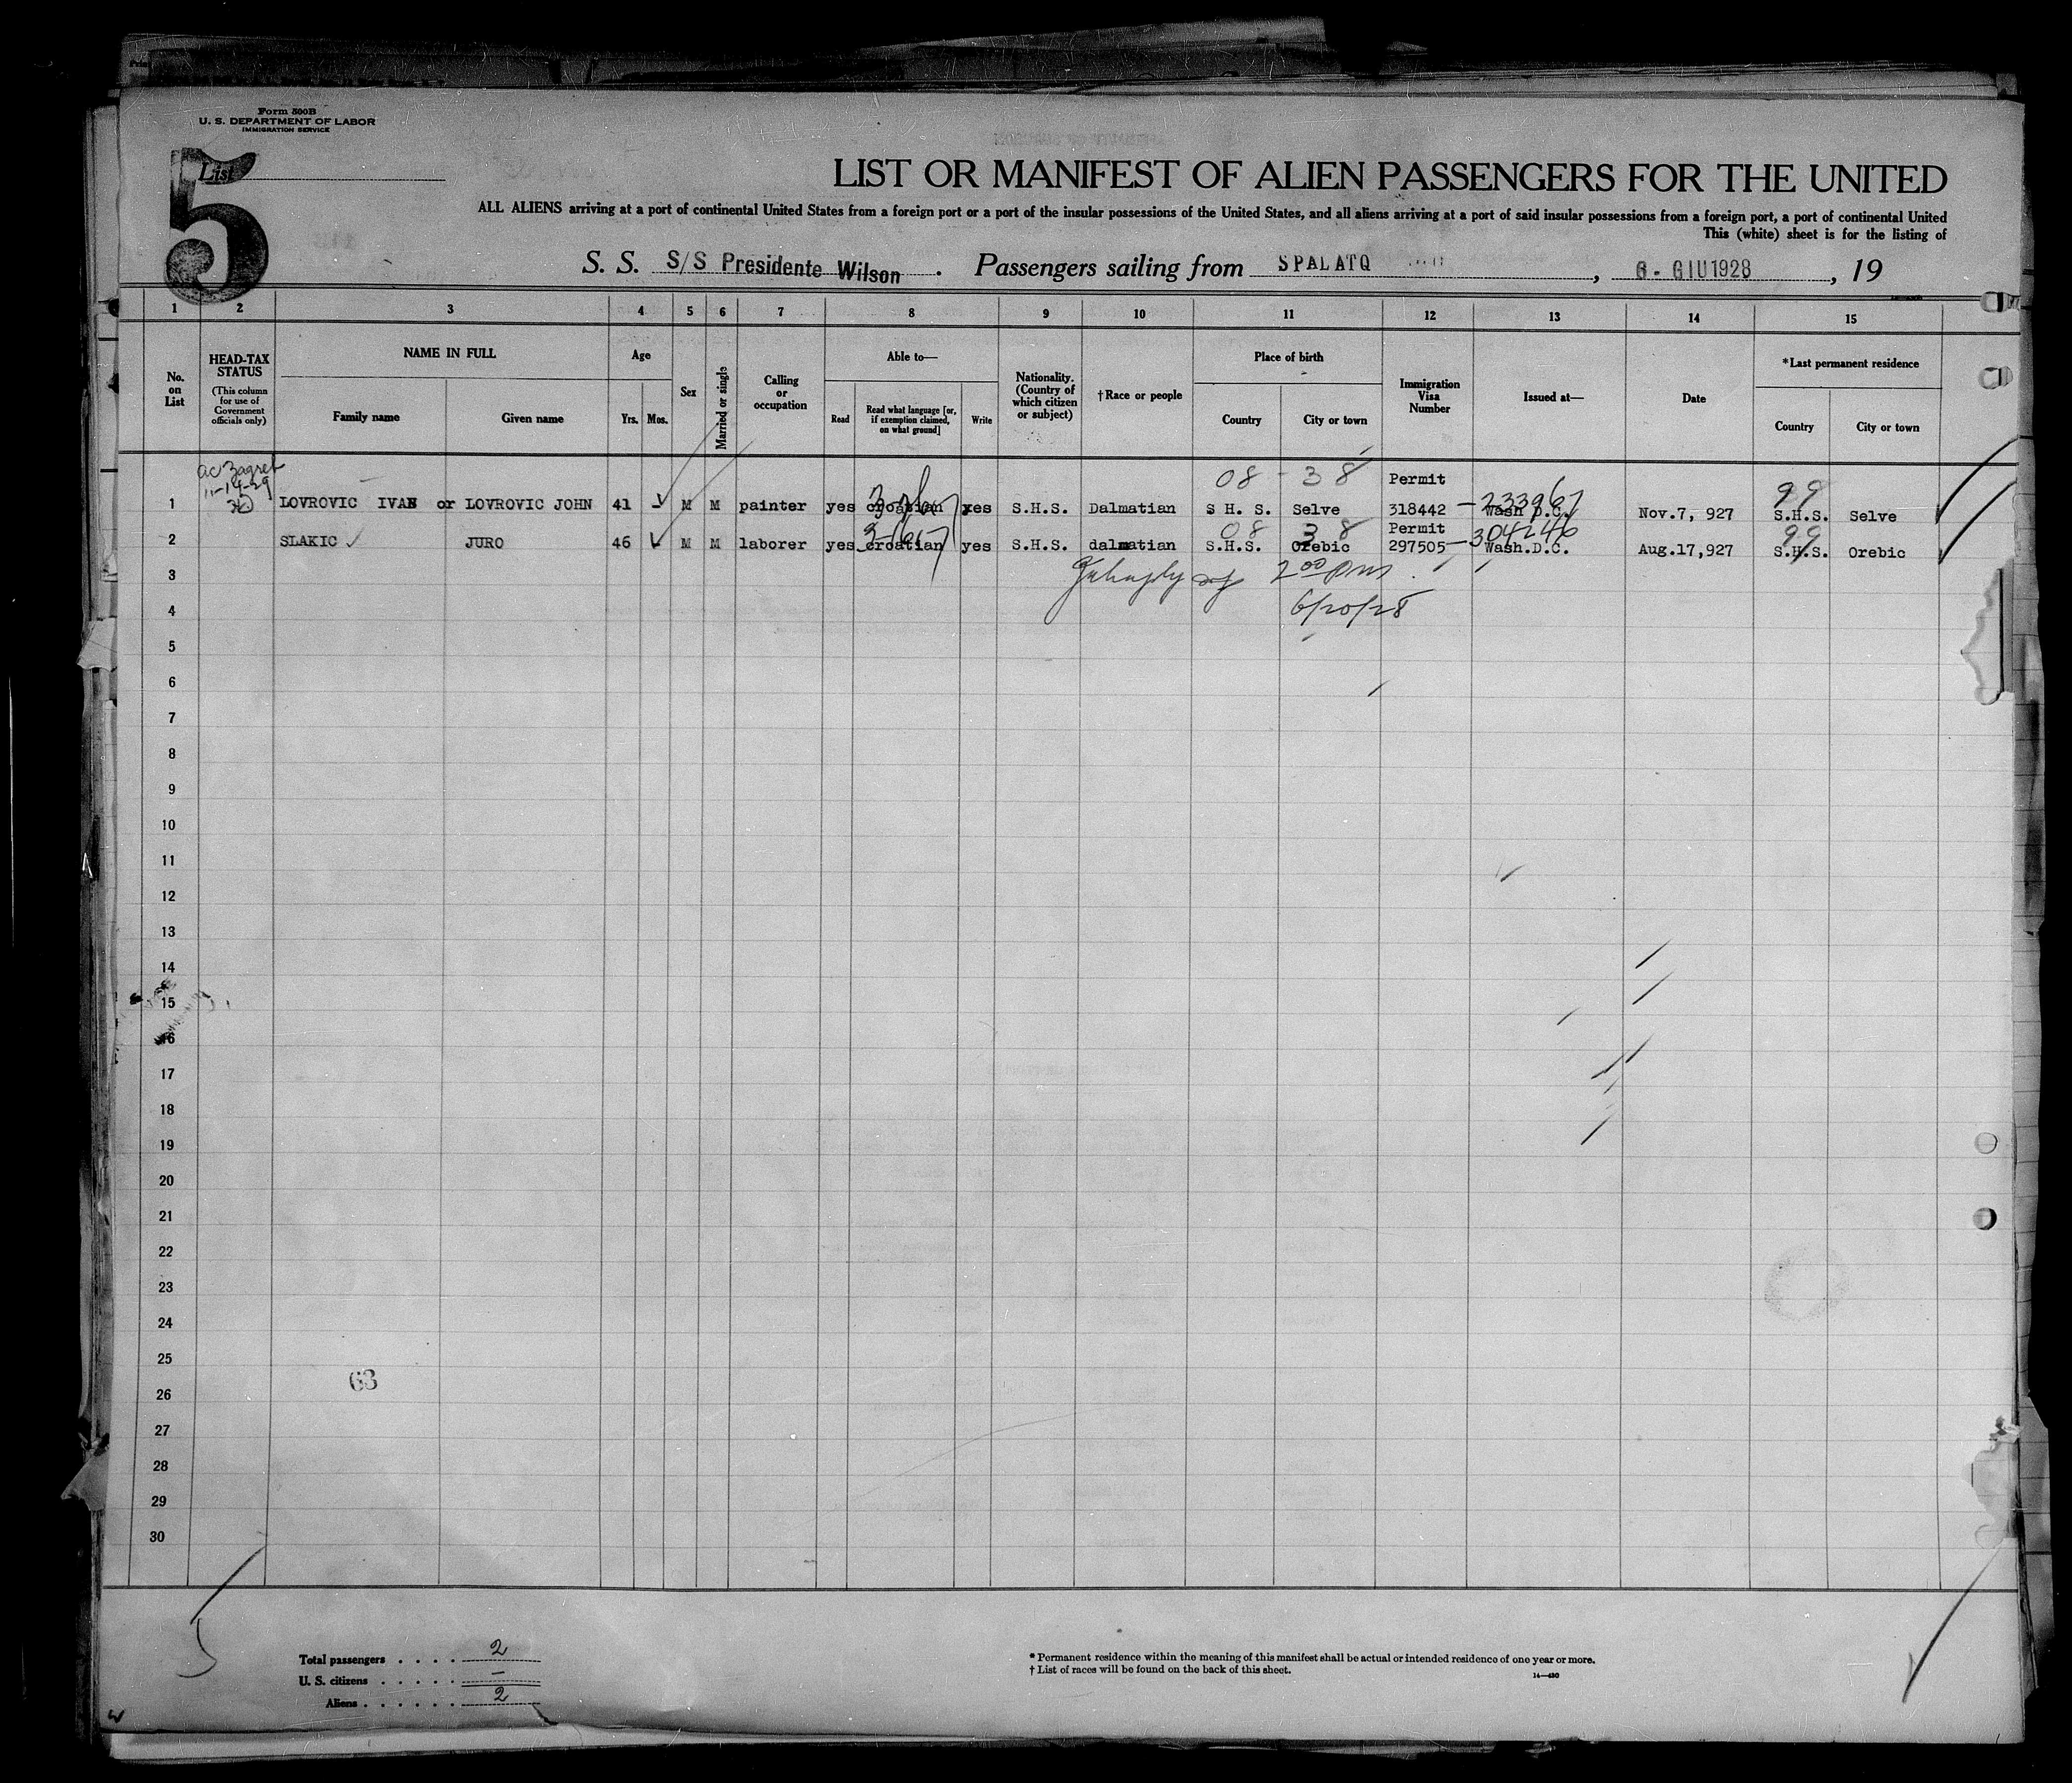 Form 500B
U. S. DEPARTMENT OF LABOR
IMMIGRATION SERVICE
List
5
LIST OR MANIFEST OF ALIEN PASSENGERS FOR THE UNITED
ALL ALIENS arriving at a port of continental United States from a foreign port or a port of the insular possessions of the United States, and all aliens arriving at a port of said insular possessions from a foreign port, a port of continental United
This (white) sheet is for the listing of
S. S. S/S Presidente Wilson . Passengers sailing from SPALATO , 6 - GIU 1928 , 19
1 2 3 4 5 6 7 8 9 10 11 12 13 14 15
No. on List
HEAD-TAX STATUS
(This column for use of Government officials only)
NAME IN FULL
Family name Given name
Age
Yrs. Mos.
Sex
Married or single
Calling or occupation
Able to—
Read Read what language [or, if exemption claimed, on what ground] Write
Nationality. (Country of which citizen or subject)
†Race or people
Place of birth
Country City or town
Immigration Visa Number
Issued at—
Date
*Last permanent residence
Country City or town
ac Zagreb
11-14-29
08 - 38 Permit 99
1 LOVROVIC IVAN or LOVROVIC JOHN 41 M M painter yes croatian yes S.H.S. Dalmatian S H. S. Selve 318442 - 233967 Wash D.C. Nov.7, 927 S.H.S. Selve
08 38 Permit 99
2 SLAKIC JURO 46 M M laborer yes croatian yes S.H.S. dalmatian S.H.S. Orebic 297505 - 304246 Wash.D.C. Aug.17,927 S.H.S. Orebic
3 2 00 pm
4 6/20/28
5
6
7
8
9
10
11
12
13
14
15
16
17
18
19
20
21
22
23
24
25
63
26
27
28
29
30
Total passengers . . . . 2
U. S. citizens . . . . . –
Aliens . . . . . . 2
* Permanent residence within the meaning of this manifest shall be actual or intended residence of one year or more.
† List of races will be found on the back of this sheet.
14—430